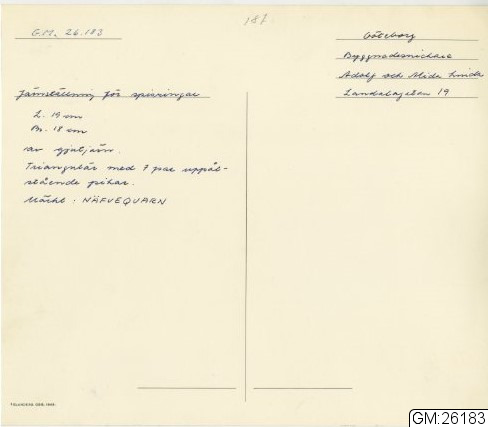 187.
G.M. 26.183
Göteborg
Byggnadssnickare
Adolf och Alida Linde
Landalagatan 19
Järnställning för spisringar
L. 19 cm
Br. 18 cm
av gjutjärn.
Triangulär med 7 par uppåt-
stående pikar.
Märkt: NÄFVEQUARN
GM:26183